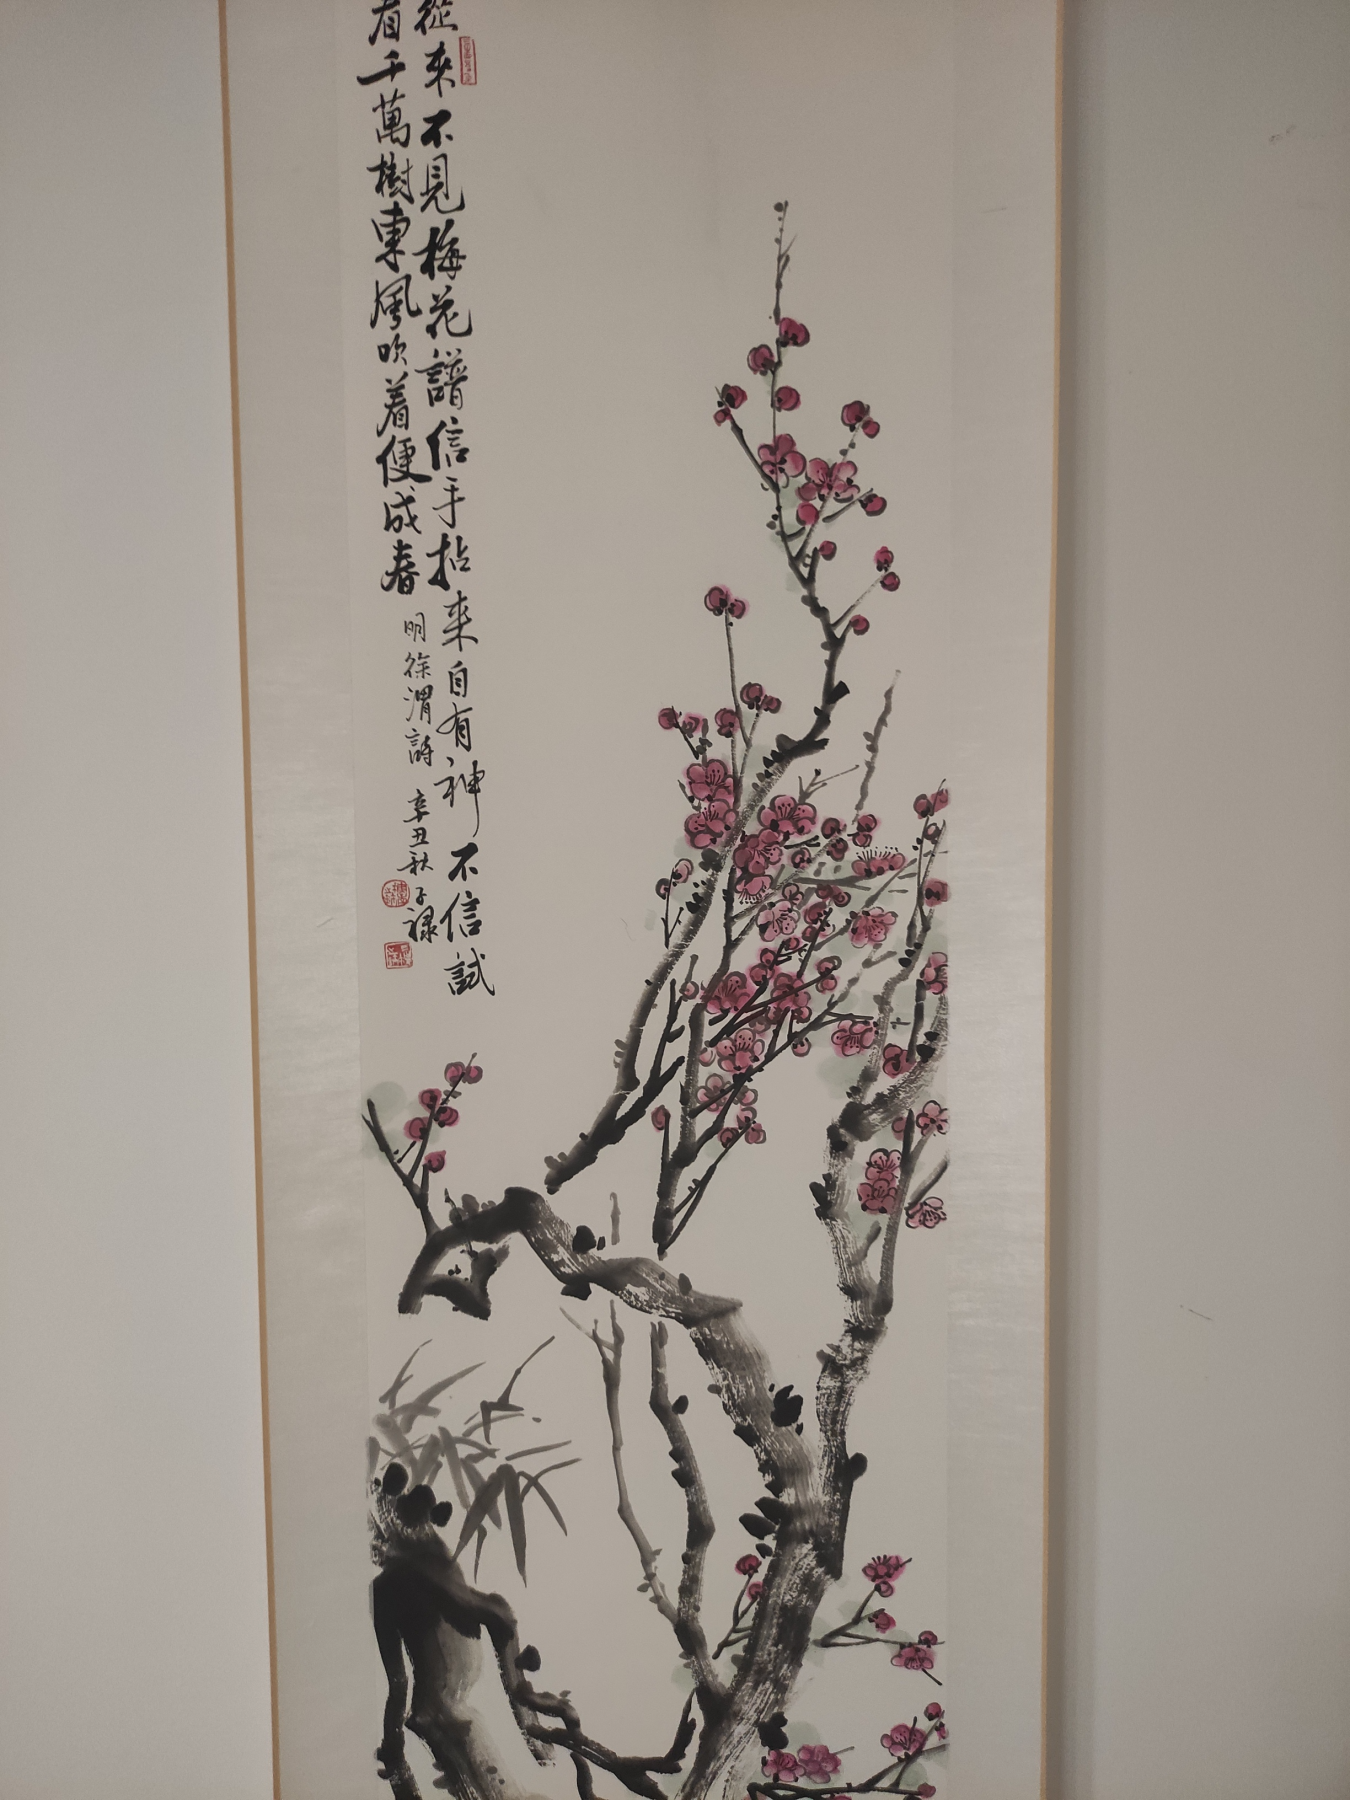 從来不見梅花譜信手拈来自有神不信試
看千萬樹東風吹着便成春
明徐渭詩
辛丑秋子禄